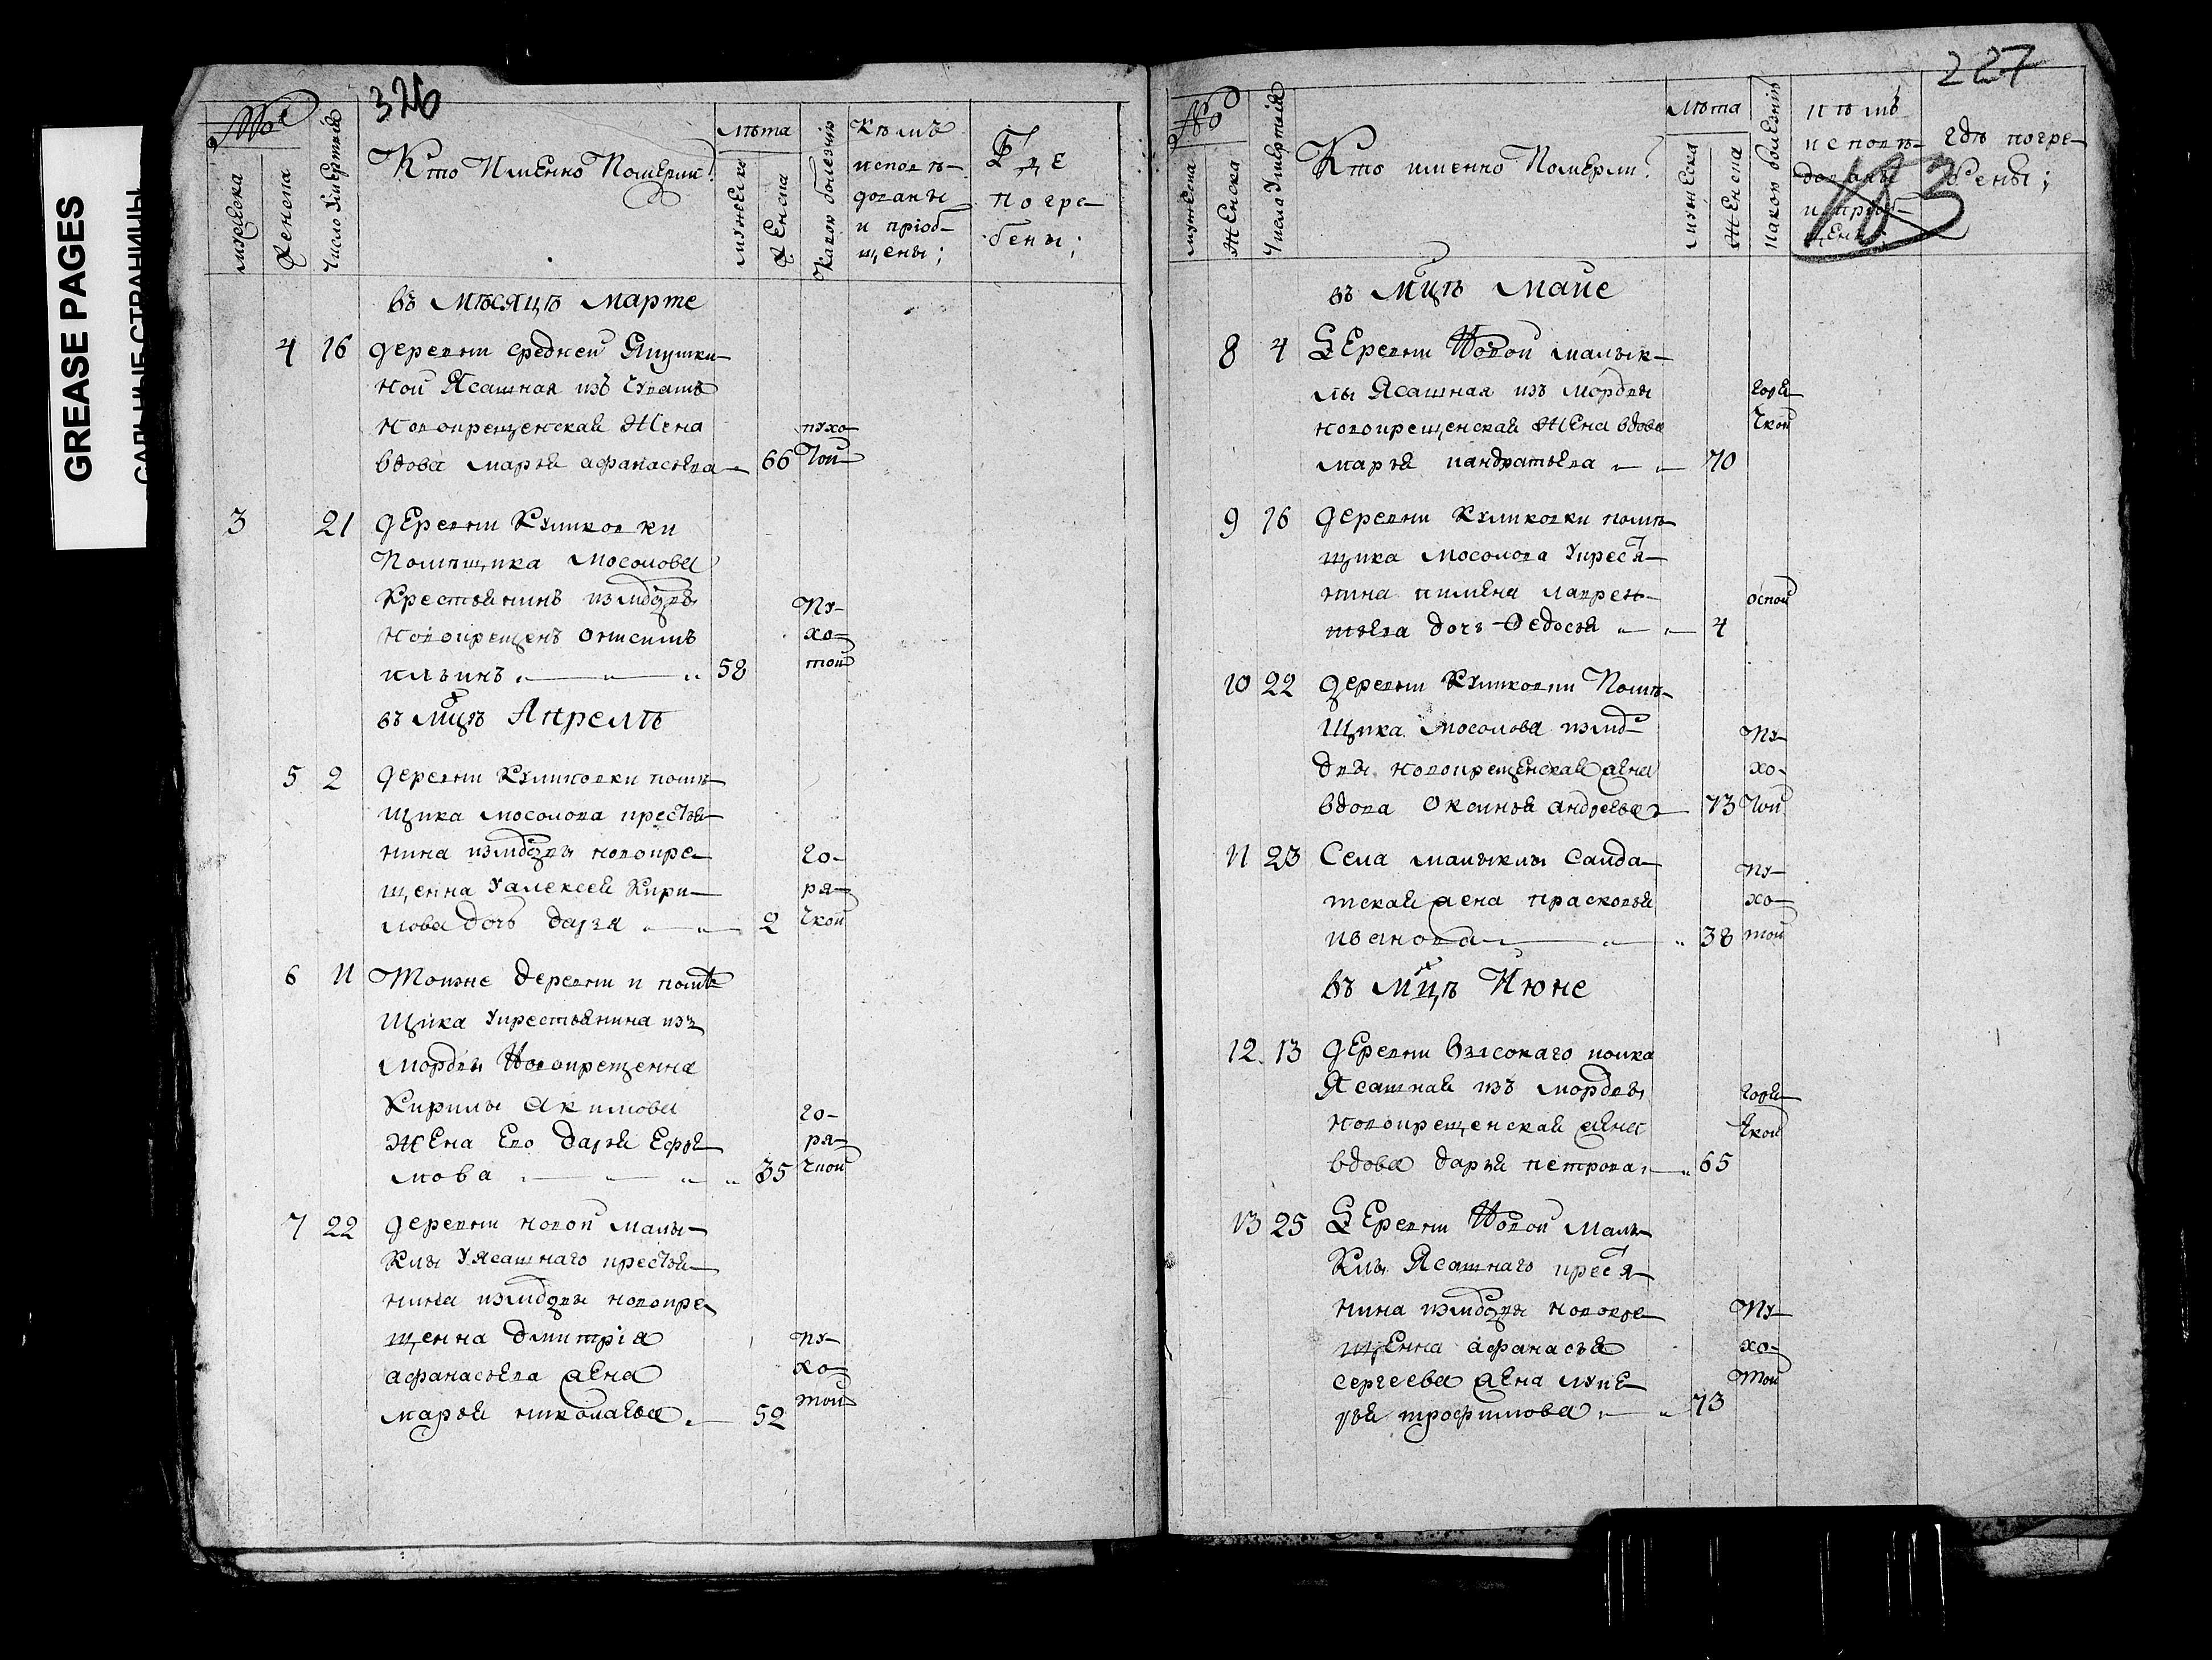 GREASE PAGES
САЛЬНЫЕ СТРАНИЦЫ
326
№
мужеска
женска
Число Умертвія
Кто Именно Померли?
Лѣта
мужеска
женска
Какою болезнію
Кѣмъ
исповѣ-
дованы
и пріоб-
щены;
Где
погре-
бены;
въ Мѣсяцѣ марте
4 16 деревни средней Якушки-
ной Ясашная изъ Чувашъ
новокрещенская Жена
вдова марья афанасьева 66
пухо-
той
3 21 деревни Куликовки
Помѣщика мосолова
Крестьянинъ измордвы
новокрещенъ Онисимъ
ильинъ 58
Пу-
хо-
той
въ Мцѣ Апрелѣ
5 2 деревни Куликовки помѣ-
щика мосолова крестья-
нина измордвы новокре-
щенна Уалексея Кири-
лова дочь дарья 2
го-
ря-
чкой
6 11 Тоиже деревни и помѣ-
щика Укрестьянина изъ
мордвы Новокрещенна
Кирилы акимова
Жена Ево дарья Ефре-
мова 35
го-
ря-
чкой
7 22 деревни новой малы-
клы Уясашнаго крестья-
нина измордвы новокре-
щенна дмитрія
афанасьева жена
марья николаева 52
пу-
хо-
той
227
183
№
мужеска
Женска
Числа Умертвія
Кто именно Померли?
Лѣта
мужеска
Женска
Какою болезнію
кѣмъ
исповѣ-
дованы
и пріоб-
щены
гдѣ погре-
бены;
въ Мцѣ Маие
8 4 Деревни Новой малык-
лы Ясашная изъ мордвы
новокрещенская Жена вдова
марья кандратьева 70
горя-
чкой
9 16 деревни Куликовки помѣ-
щика мосолова Укрестья-
нина пимена лаврен-
тьева дочь Ѳедосья 4
оспой
10 22 деревни Куликовки Помѣ-
щика мосолова измор-
двы новокрещенская жена
вдова Оксинья андреева 73
Пу-
хо-
той
11 23 Села малыклы Салда-
тская жена прасковья
иванова 38
Пу-
хо-
той
въ Мцѣ Июне
12 13 деревни высокаго колка
Ясашная изъ мордвы
новокрещенская жена
вдова дарья петрова 65
горя-
чкой
13 25 Деревни Новой Малы-
клы Ясашнаго крестья-
нина измордвы новокре-
щенна афанасья
сергеева жена луке-
рья трофимова 73
Пу-
хо-
той